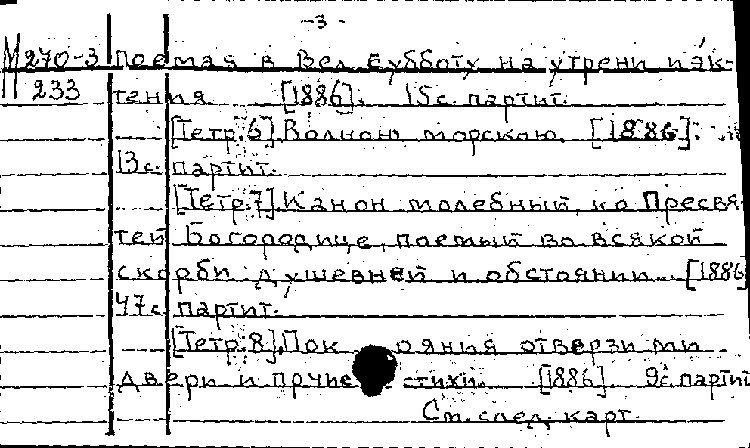 -3-
М270-3 Поемая в Вел. Субботу на утрени и як-
233 тения [1886]. 15с. партит.
[Тетр.6]. Волною морскою. [1886].
13с. партит.
[Тетр.7]. Канон молебный ко Пресвя-
тей Богородице, поемый во всякой
скорби душевней и обстоянии... [1886]
47с. партит.
[Тетр.8]. Пок ояния отверзи ми
двери и прчие стихи. [1886]. 9с. партит
См. след. карт.